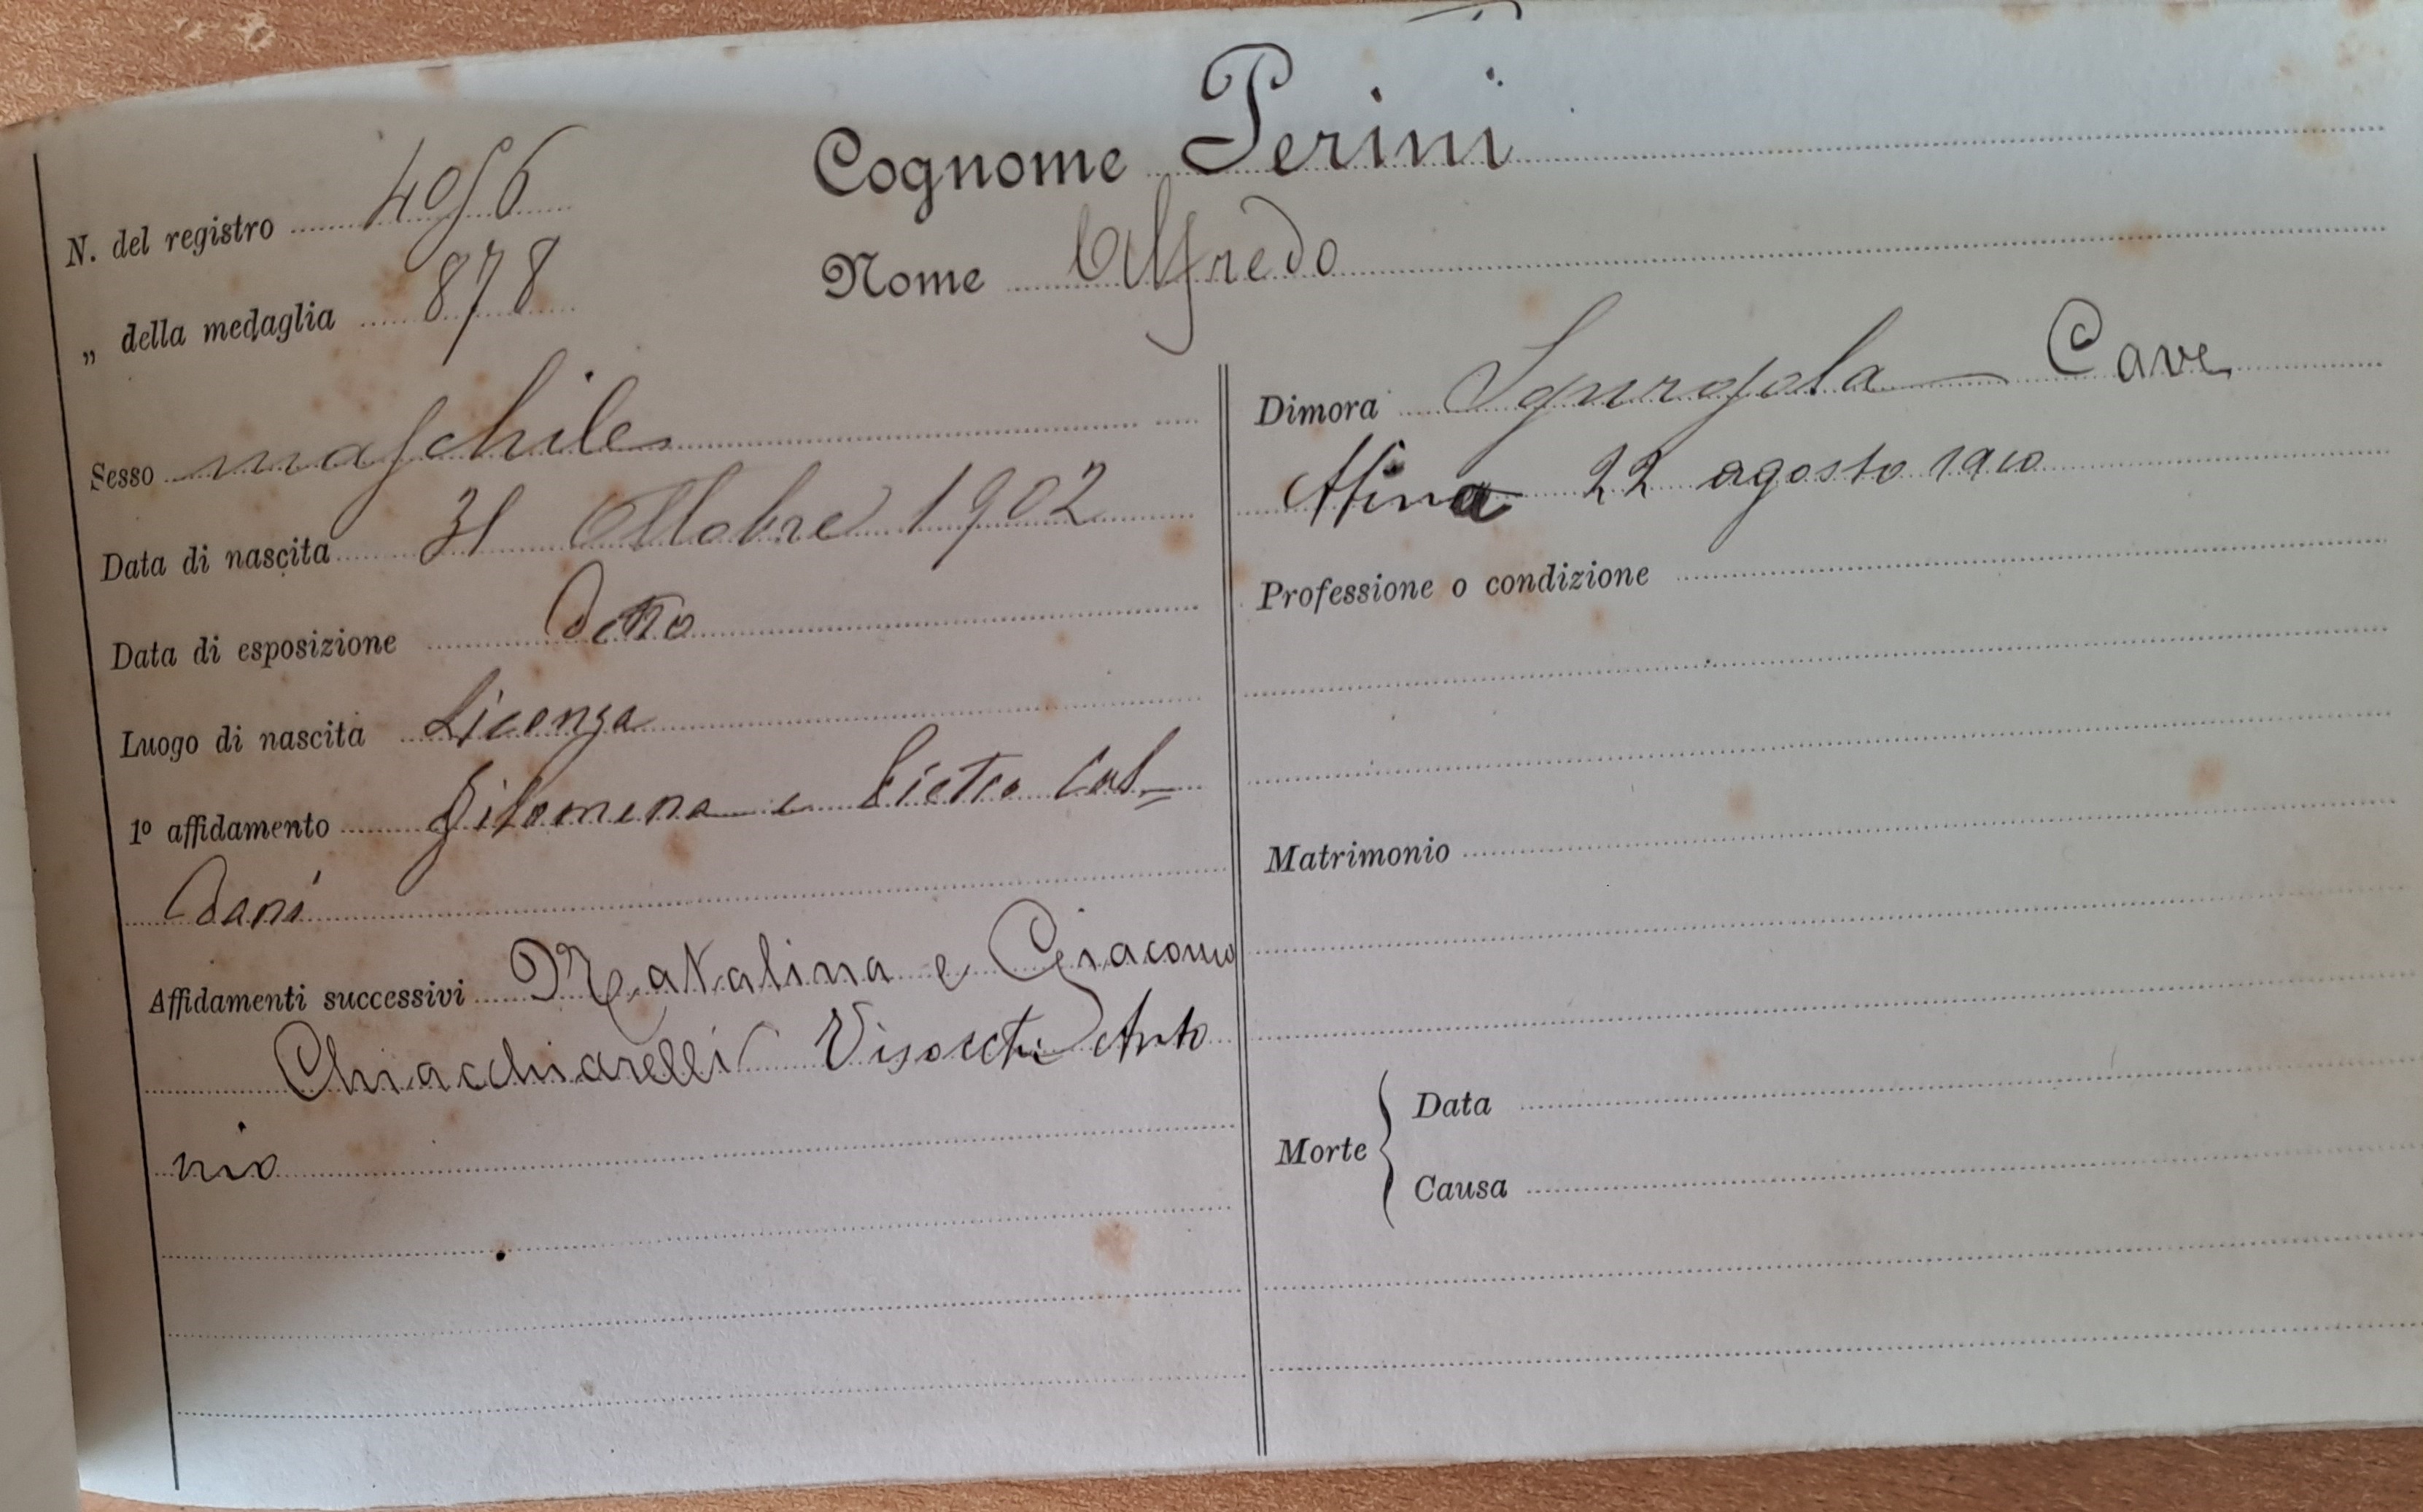 Cognome Perini
N. del registro 4056
Nome Alfredo
„ della medaglia 878
Sesso maschile
Data di nascita 31 Ottobre 1902
Data di esposizione Detto
Luogo di nascita Licenza
1º affidamento Filomena e Pietro Cal=
dani
Affidamenti successivi Natalina e Giacomo
Chiacchiarelli Visocchi Anto
nio
Dimora Sgurgola — Cave
Atina 22 agosto 1910
Professione o condizione
Matrimonio
Morte
Data
Causa